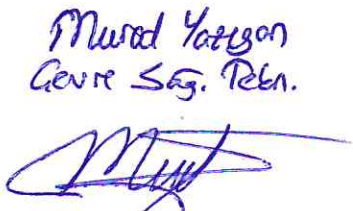 Murad Yazıgan
Çevre Sağ. Tekn.